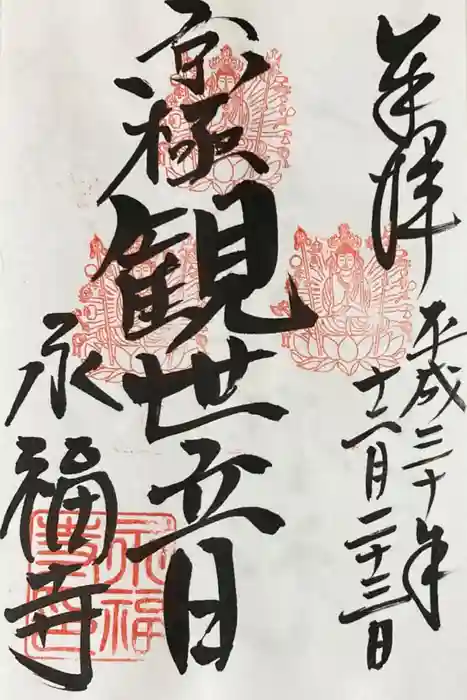 奉拝
平成三十年
十二月二十三日
京極
観世音
永福寺